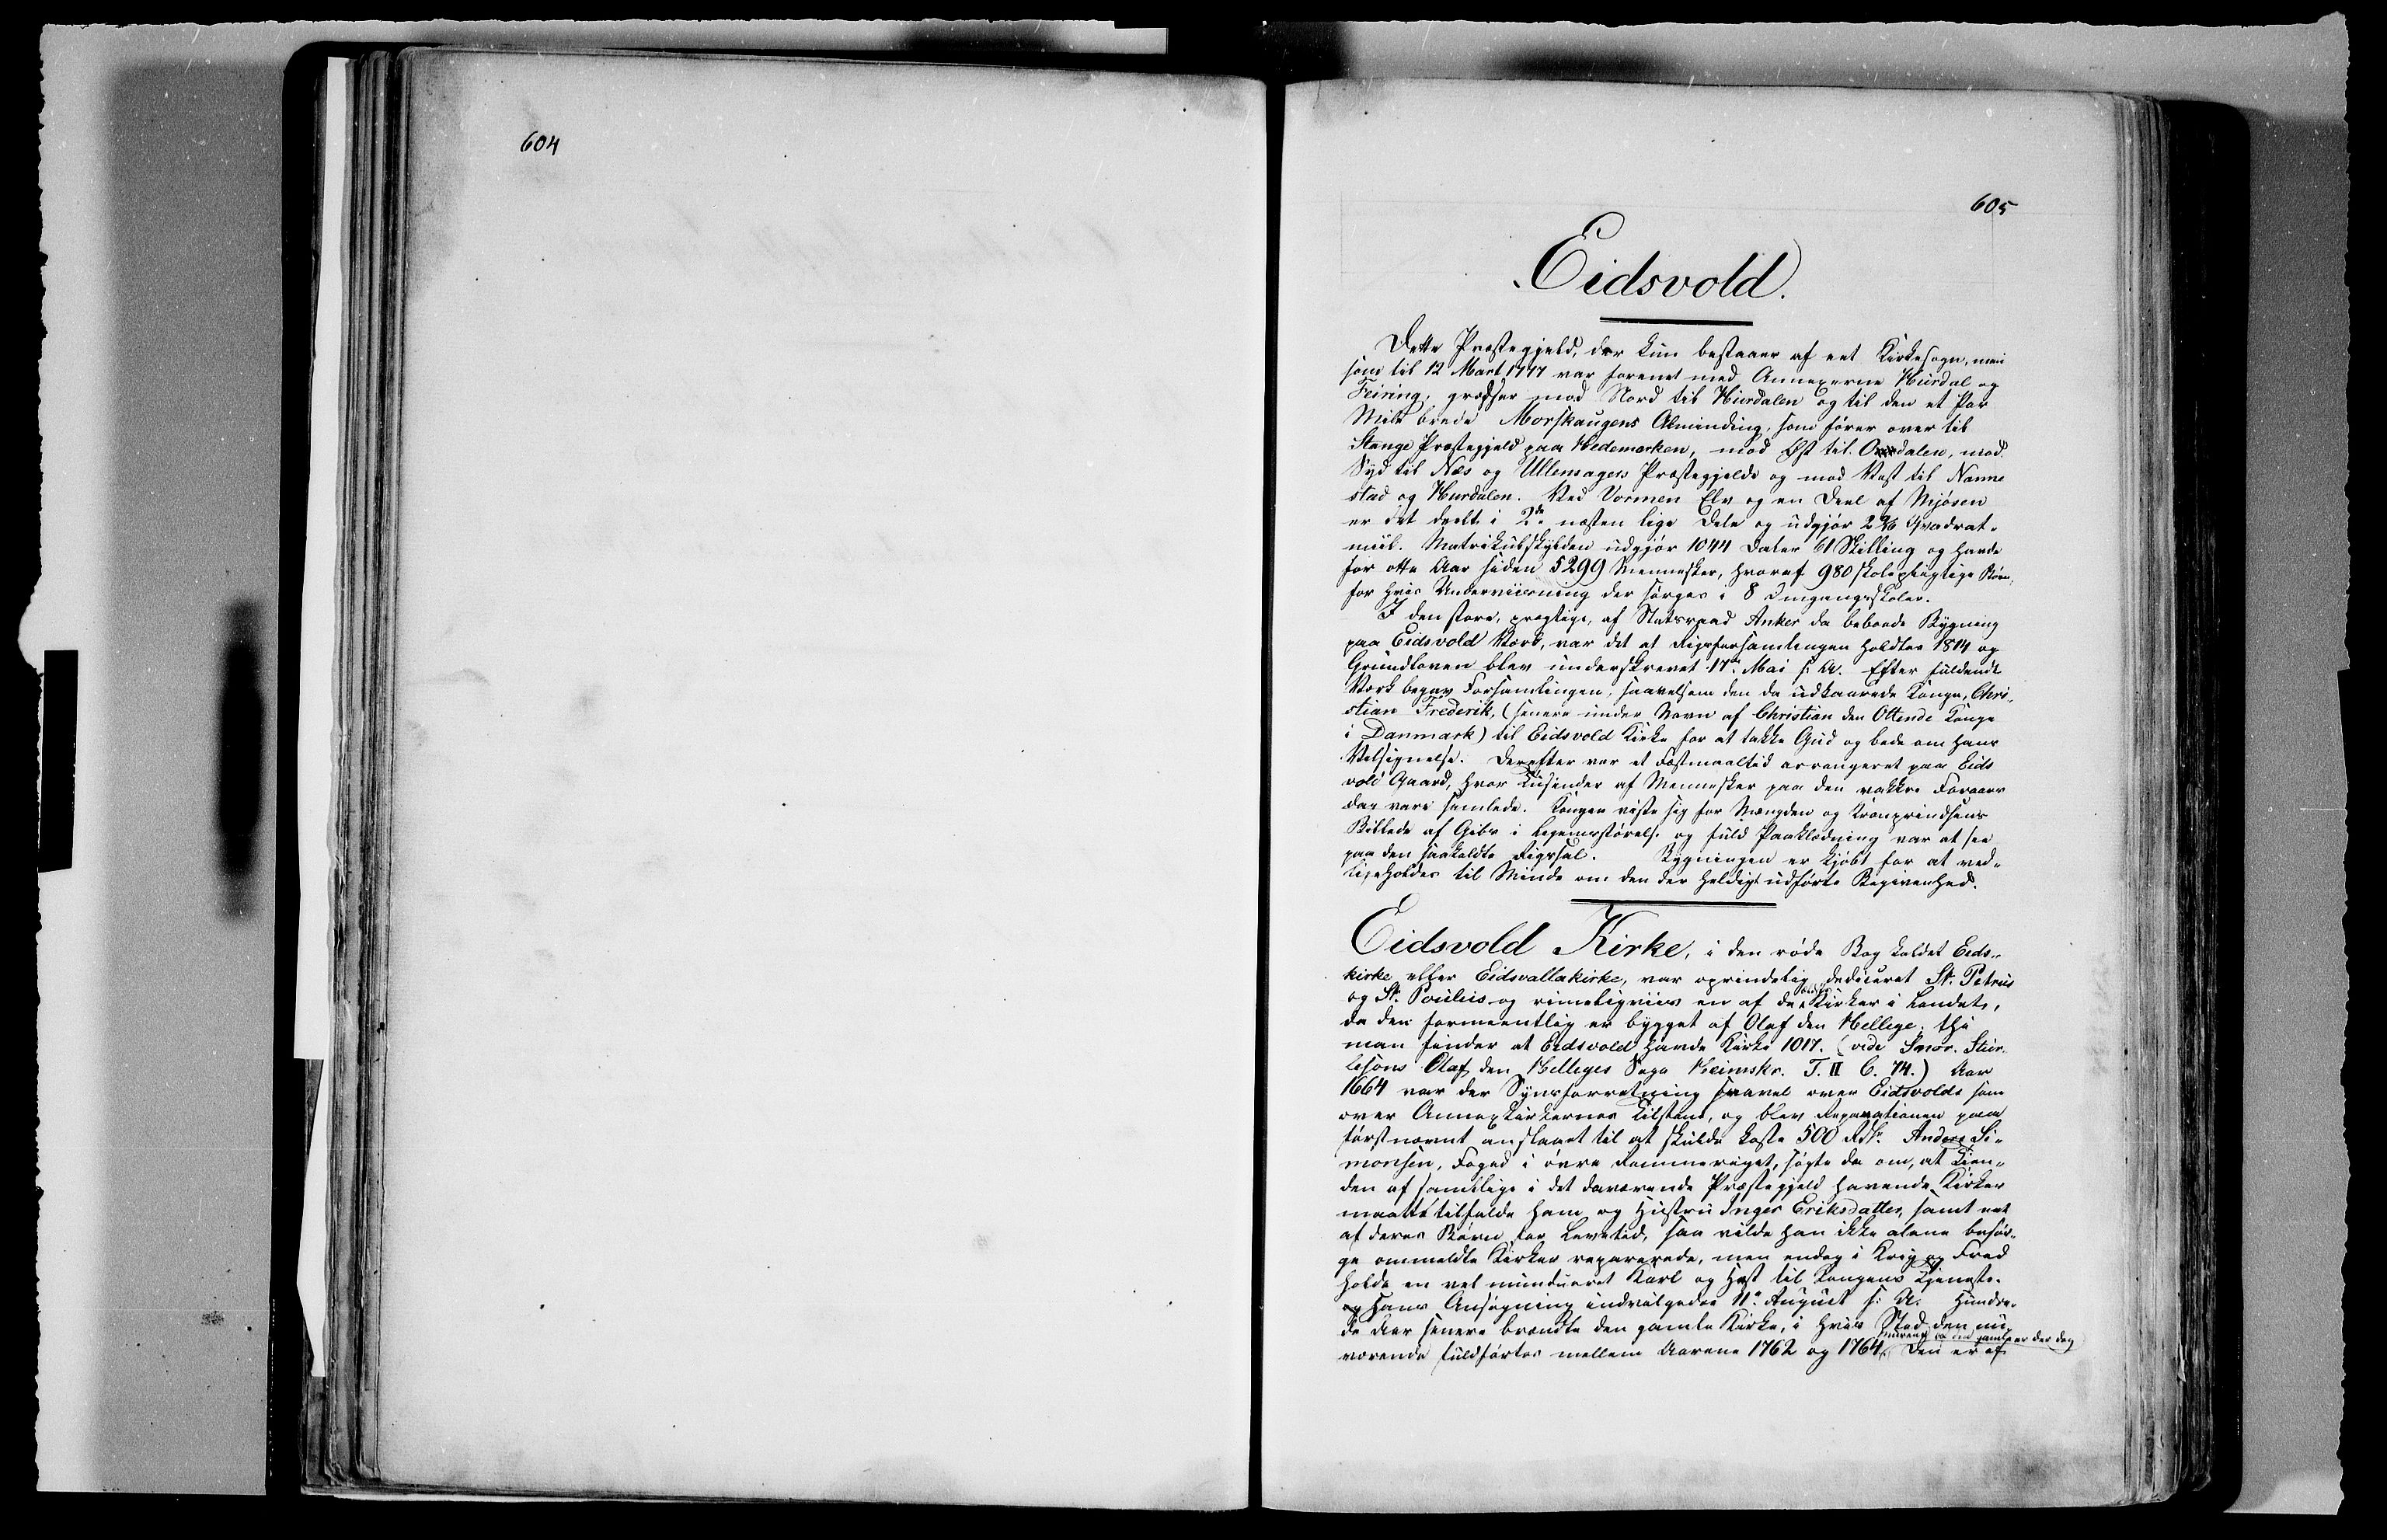 604
605
Eidsvold.
Dette Præstegjeld, der kun bestaaer af eet Kirkesogn, men
som til 12 Mart 1777 var forenet med Annexerne Hurdal og
Feiring, grædser mod Nord til Hurdalen og til den et Par
Mile brede Morskaugens Alminding, som fører over til
Stange Præstegjeld paa Hedemarken, mod Øst til Odalen, mod
Syd til Næs og Ullensagers Præstegjelde og mod Vest til Nanne
stad og Hurdalen. Ved Vormen Elv og en Deel af Mjøsen
er det deelt i 2de næsten lige Dele og udgjør Qvadrat-
miil. Matrikulskylden udgjør 1044 Daler 61 Skilling og havde
for otte Aar siden 5299 Mennesker, hvoraf 980 skolepligtige Børn,
for hvis Underviisning der sørges i 8 Omgangsskoler.
I den store, prægtige, af Statsraad Anker da beboede Bygning
paa Eidsvold Værk, var det at Rigsforsamlingen holdtes 1814 og
Grundloven blev underskrevet 17de Mai s: A. Efter fuldendt
Værk begav Forsamlingen, saavelsom den da udkaarede Konge, Chri-
stian Frederik, (senere under Navn af Christian den Ottende Konge
i Danmark) til Eidsvold Kirke for at takke Gud og bede om hans
Velsignelse. Derefter var et Festmaaltid arrangeret paa Eids
vold Gaard, hvor Tusinder af Mennesker paa den vakkre Foraars
dag vare samlede. Kongen viste sig for Mængden og Kronprindsens
Billede af Gibs i Legemsstørrelse og fuld Paaklædning var at see
paa den saakaldte Rigssal. Bygningen er kjøbt for at ved-
ligeholdes til Minde om den der heldigt udførte Begivenhed.
Eidsvold Kirke, i den røde Bog kaldet Eids-
kirke eller Eidsvallakirke, var oprindelig dediceret St. Petrus
og St. Poulus og rimeligviis en af de ældste Kirker i Landet,
da den formeentlig er bygget af Olaf den Hellige; thi
man finder at Eidsvold havde Kirke 1017. (vide Snor. Stur-
lesøns Olaf den Helliges Saga Heimskr. T. II C. 74.) Aar
1664 var der Synsforretning saavel over Eidsvolds som
over Annexkirkernes Tilstand, og blev Reparationen paa
førstnævnt anslaaet til at skulde koste 500 Rdlr. Anders Si-
monsen, Foged i øvre Rommeriget, søgte da om, at Tien-
den af samtlige i det daværende Præstegjeld havende Kirker
maatte tilfalde ham og Hustru Inger Eriksdatter, samt eet
af deres Børn for Levetid, saa vilde han ikke alene besør-
ge ommeldte Kirker reparerede, men endog i Krig og Fred
holde en vel munderet Karl og Hest til Kongens Tjeneste.
og Hans Ansøgning indvilgedes 11te August s: A. Hundre-
de Aar senere brændte den gamle Kirke, i hvis Sted den nu-
værende fuldførtes mellem Aarene 1762 og 1764. Den er af